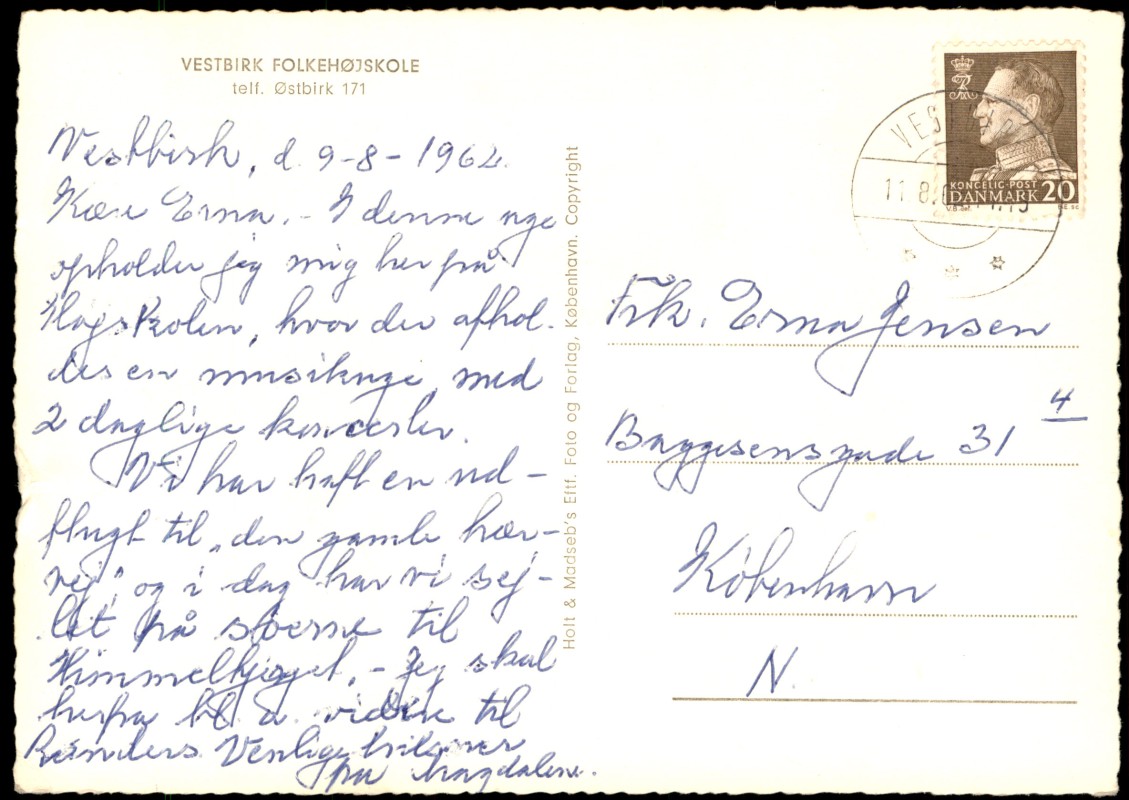 VESTBIRK FOLKEHØJSKOLE
telf. Østbirk 171
Vestbirk, d. 9-8-1962.
Kære Erna. - I denne uge
opholder jeg mig her på
Højskolen, hvor der afhol-
des en musikuge, med
2 daglige koncerter.
Vi har haft en ud-
flugt til "den gamle hær-
vej", og i dag har vi sej-
let på søerne til
Himmelbjerget. - Jeg skal
herfra bl. a. videre til
Randers. Venlige hilsner
fra Magdalene.
Holt & Madseb's Eftf. Foto og Forlag, København. Copyright
KONGELIG·POST
DANMARK 20
11.8
Frk. Erna Jensen
Baggesensgade 31 4
København
N.